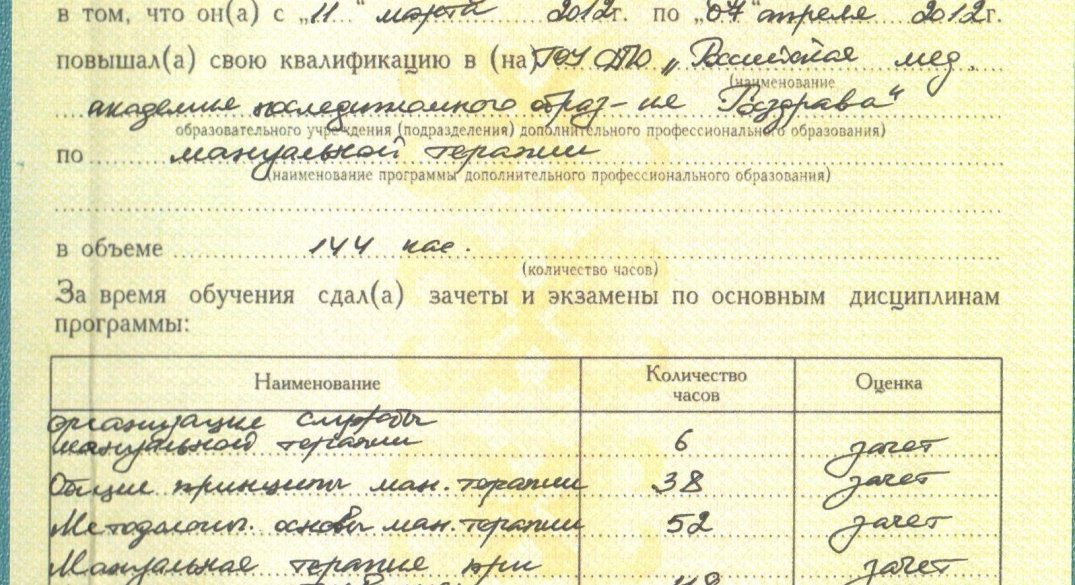 в том, что он(а) с „11“ марта 2012г. по „07“ апреля 2012г.
повышал(а) свою квалификацию в (на) ГОУ ДПО „Российская мед.
(наименование
академия последипломного образ-ия Росздрава“
образовательного учреждения (подразделения) дополнительного профессионального образования)
по мануальной терапии
(наименование программы дополнительного профессионального образования)
в объеме 144 час.
(количество часов)
За время обучения сдал(а) зачеты и экзамены по основным дисциплинам
программы:
Наименование Количество часов Оценка
Организация службы
мануальной терапии 6 зачет
Общие принципы ман. терапии 38 зачет
Методологич. основы ман. терапии 52 зачет
Мануальная терапия при зачет